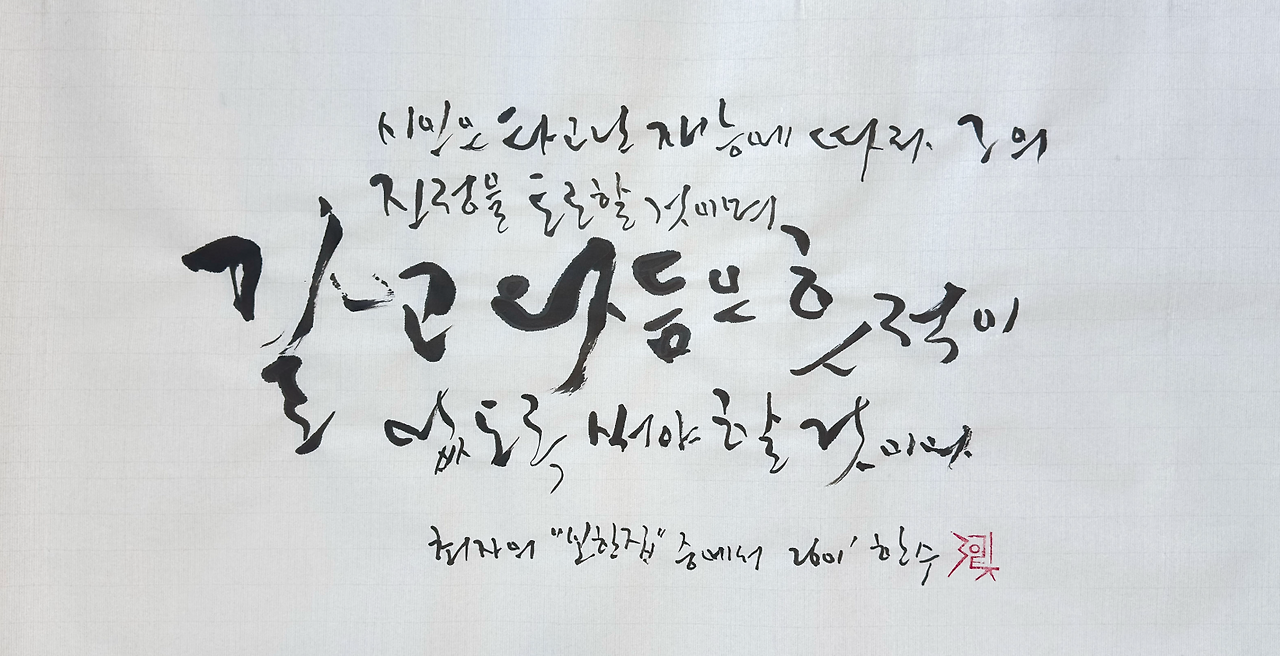 시인은 타고난 재능에 따라 그의
진정을 토로할 것이며
갈고 다듬은 흔적이
없도록 써야 할 것이며
최자의 "보한집" 중에서 한수